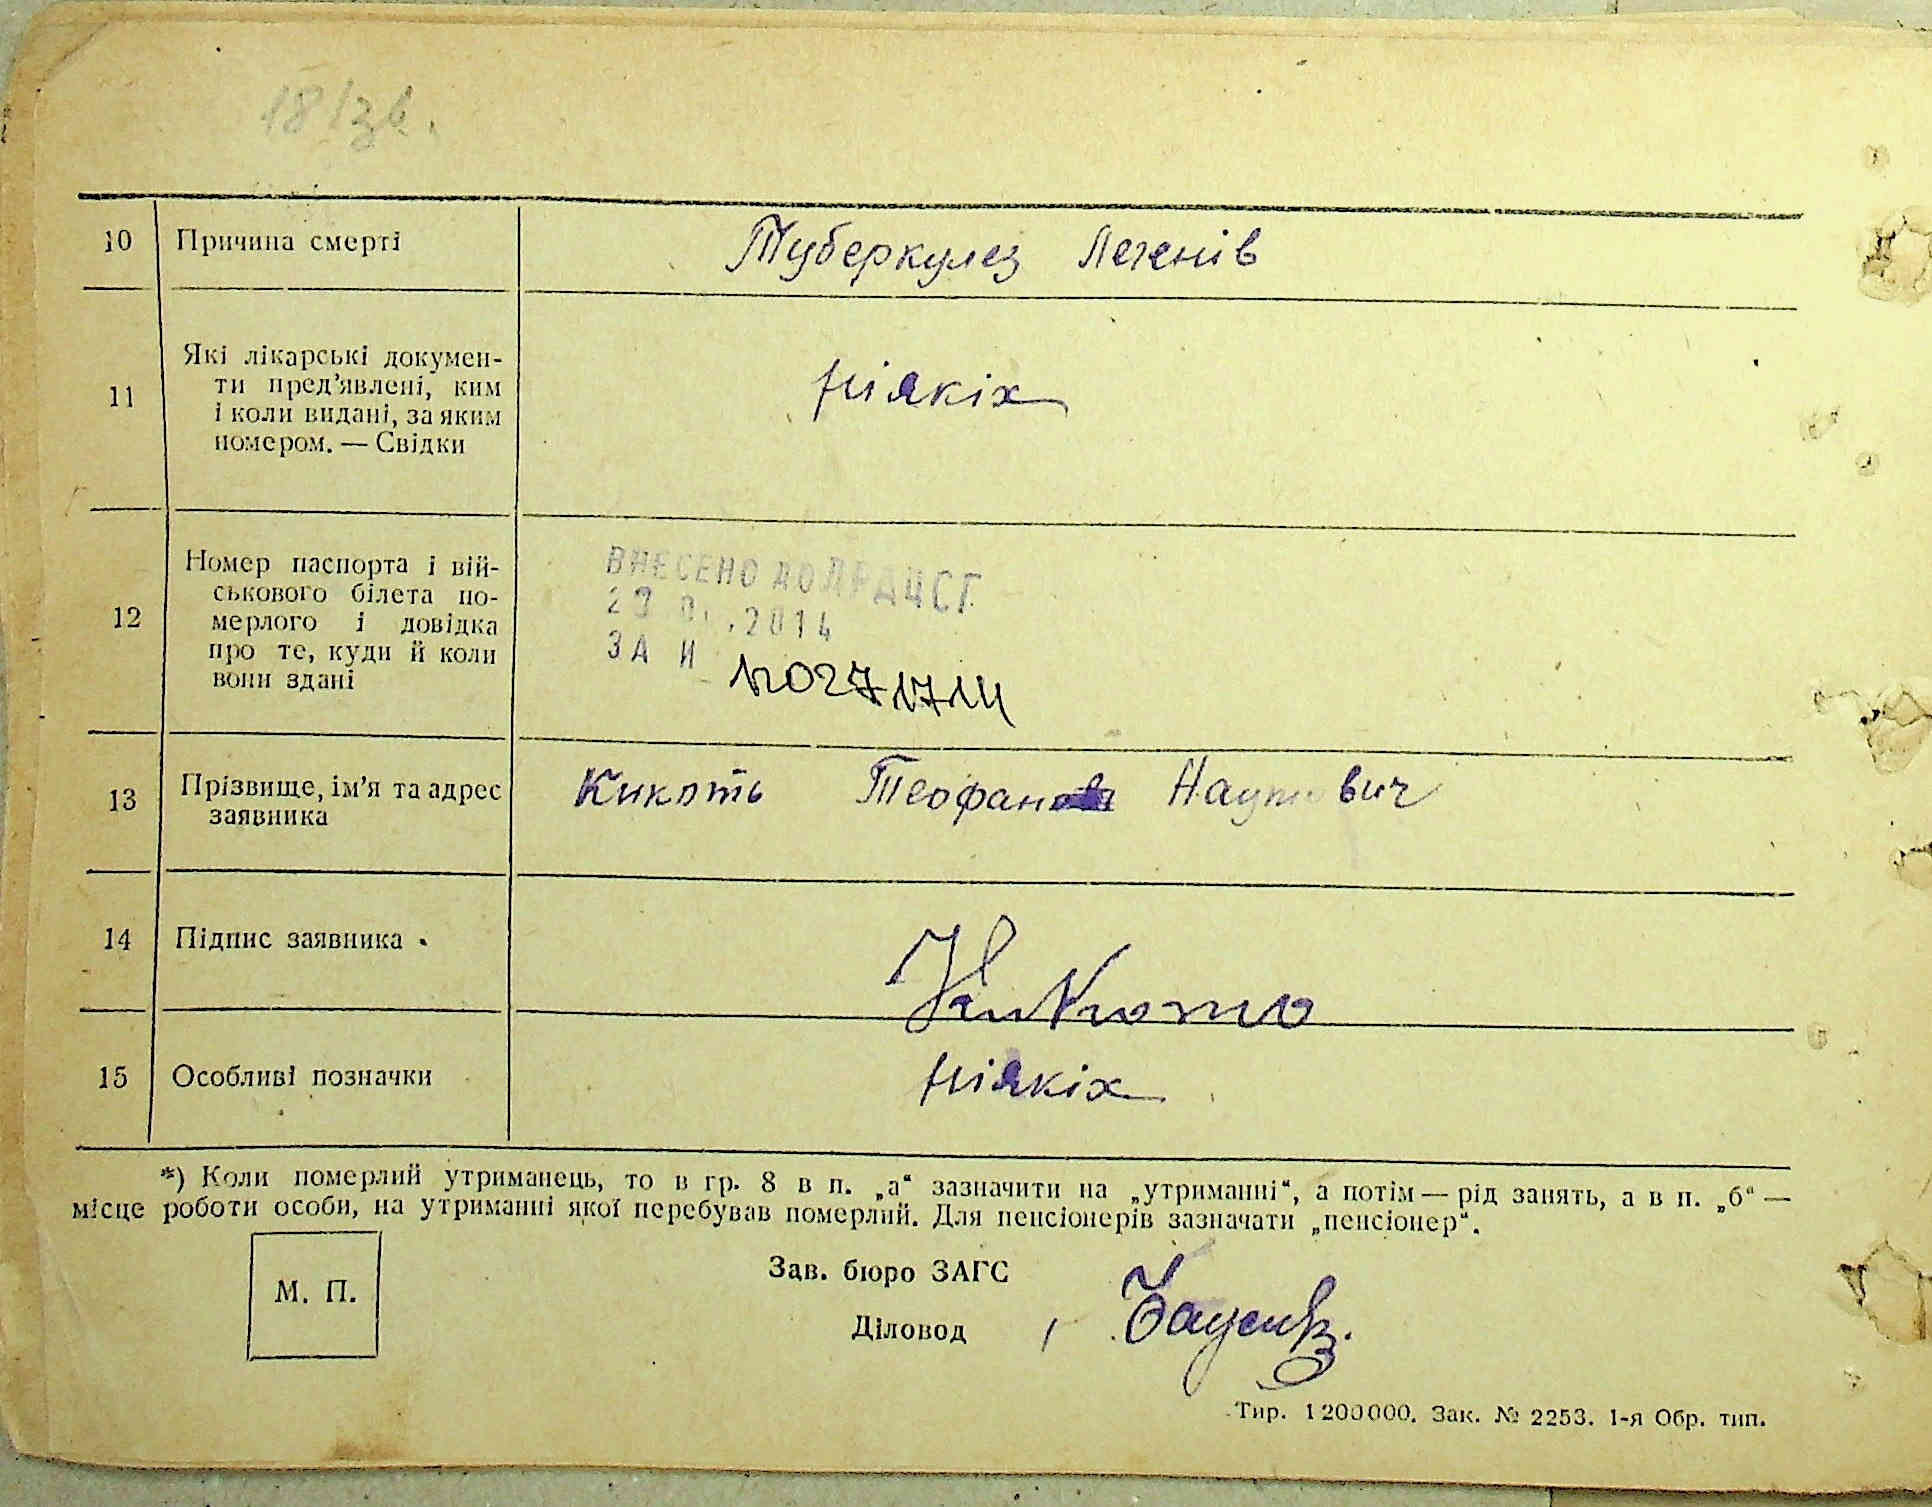 18/зв.
10 Причина смерті Туберкулез Легенів
11 Які лікарські докумен-
ти пред'явлені, ким
і коли видані, за яким
номером. — Свідки
ніякіх
12 Номер паспорта і вій-
ськового білета по-
мерлого і довідка
про те, куди й коли
вони здані
ВНЕСЕНО ДО ДРАЦСГ
2014
ЗА И
13 Прізвище, ім'я та адрес
заявника
Кикоть Теофан Наумович
14 Підпис заявника
15 Особливі позначки ніякіх
*) Коли померлий утриманець, то в гр. 8 в п. „а“ зазначити на „утриманні“, а потім — рід занять, а в п. „б“ —
місце роботи особи, на утриманні якої перебував померлий. Для пенсіонерів зазначати „пенсіонер“.
М. П.
Зав. бюро ЗАГС
Діловод
Тир. 1200000. Зак. № 2253. 1-я Обр. тип.